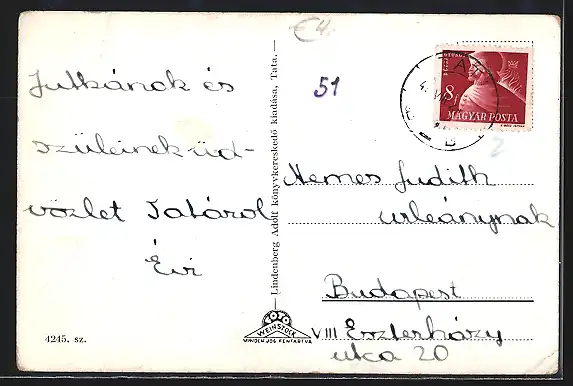 €4.
51
Jutkának és
szüleinek üd-
vözlet Tatárol
Évi
Lindenberg Adolf könyvkereskedő kiadása, Tata.
4245. sz.
WEINSTOCK
MINDEN JOG FENTARTVA
8f
MAGYAR POSTA
TATA
B
2
Nemes Judith
urleánynak
Budapest
VIII Eszterházy
utca 20